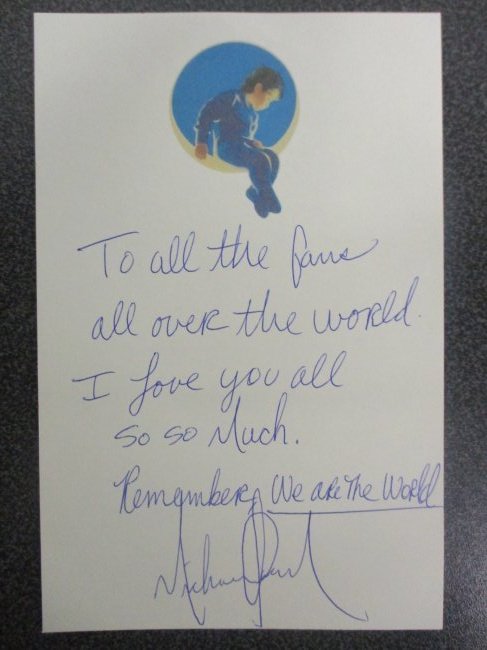 To all the fans
all over the world.
I love you all
so so Much.
Remember, We are The World
Michael Jackson